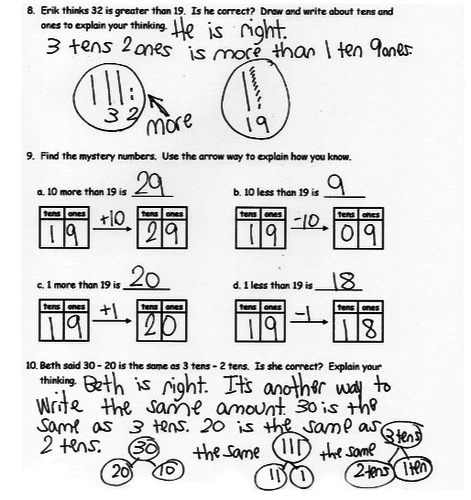 8. Erik thinks 32 is greater than 19. Is he correct? Draw and write about tens and
ones to explain your thinking. He is right.
3 tens 2 ones is more than 1 ten 9 ones
32
more
19
9. Find the mystery numbers. Use the arrow way to explain how you know.
a. 10 more than 19 is 29
b. 10 less than 19 is 9
tens ones +10 tens ones
19 29
tens ones -10 tens ones
19 09
c. 1 more than 19 is 20
d. 1 less than 19 is 18
tens ones +1 tens ones
19 20
tens ones -1 tens ones
19 18
10. Beth said 30 - 20 is the same as 3 tens - 2 tens. Is she correct? Explain your
thinking. Beth is right. It's another way to
write the same amount. 30 is the
same as 3 tens. 20 is the same as
2 tens.
30 the same 111 the same 3 tens
20 10 11 1 2 tens 1 ten